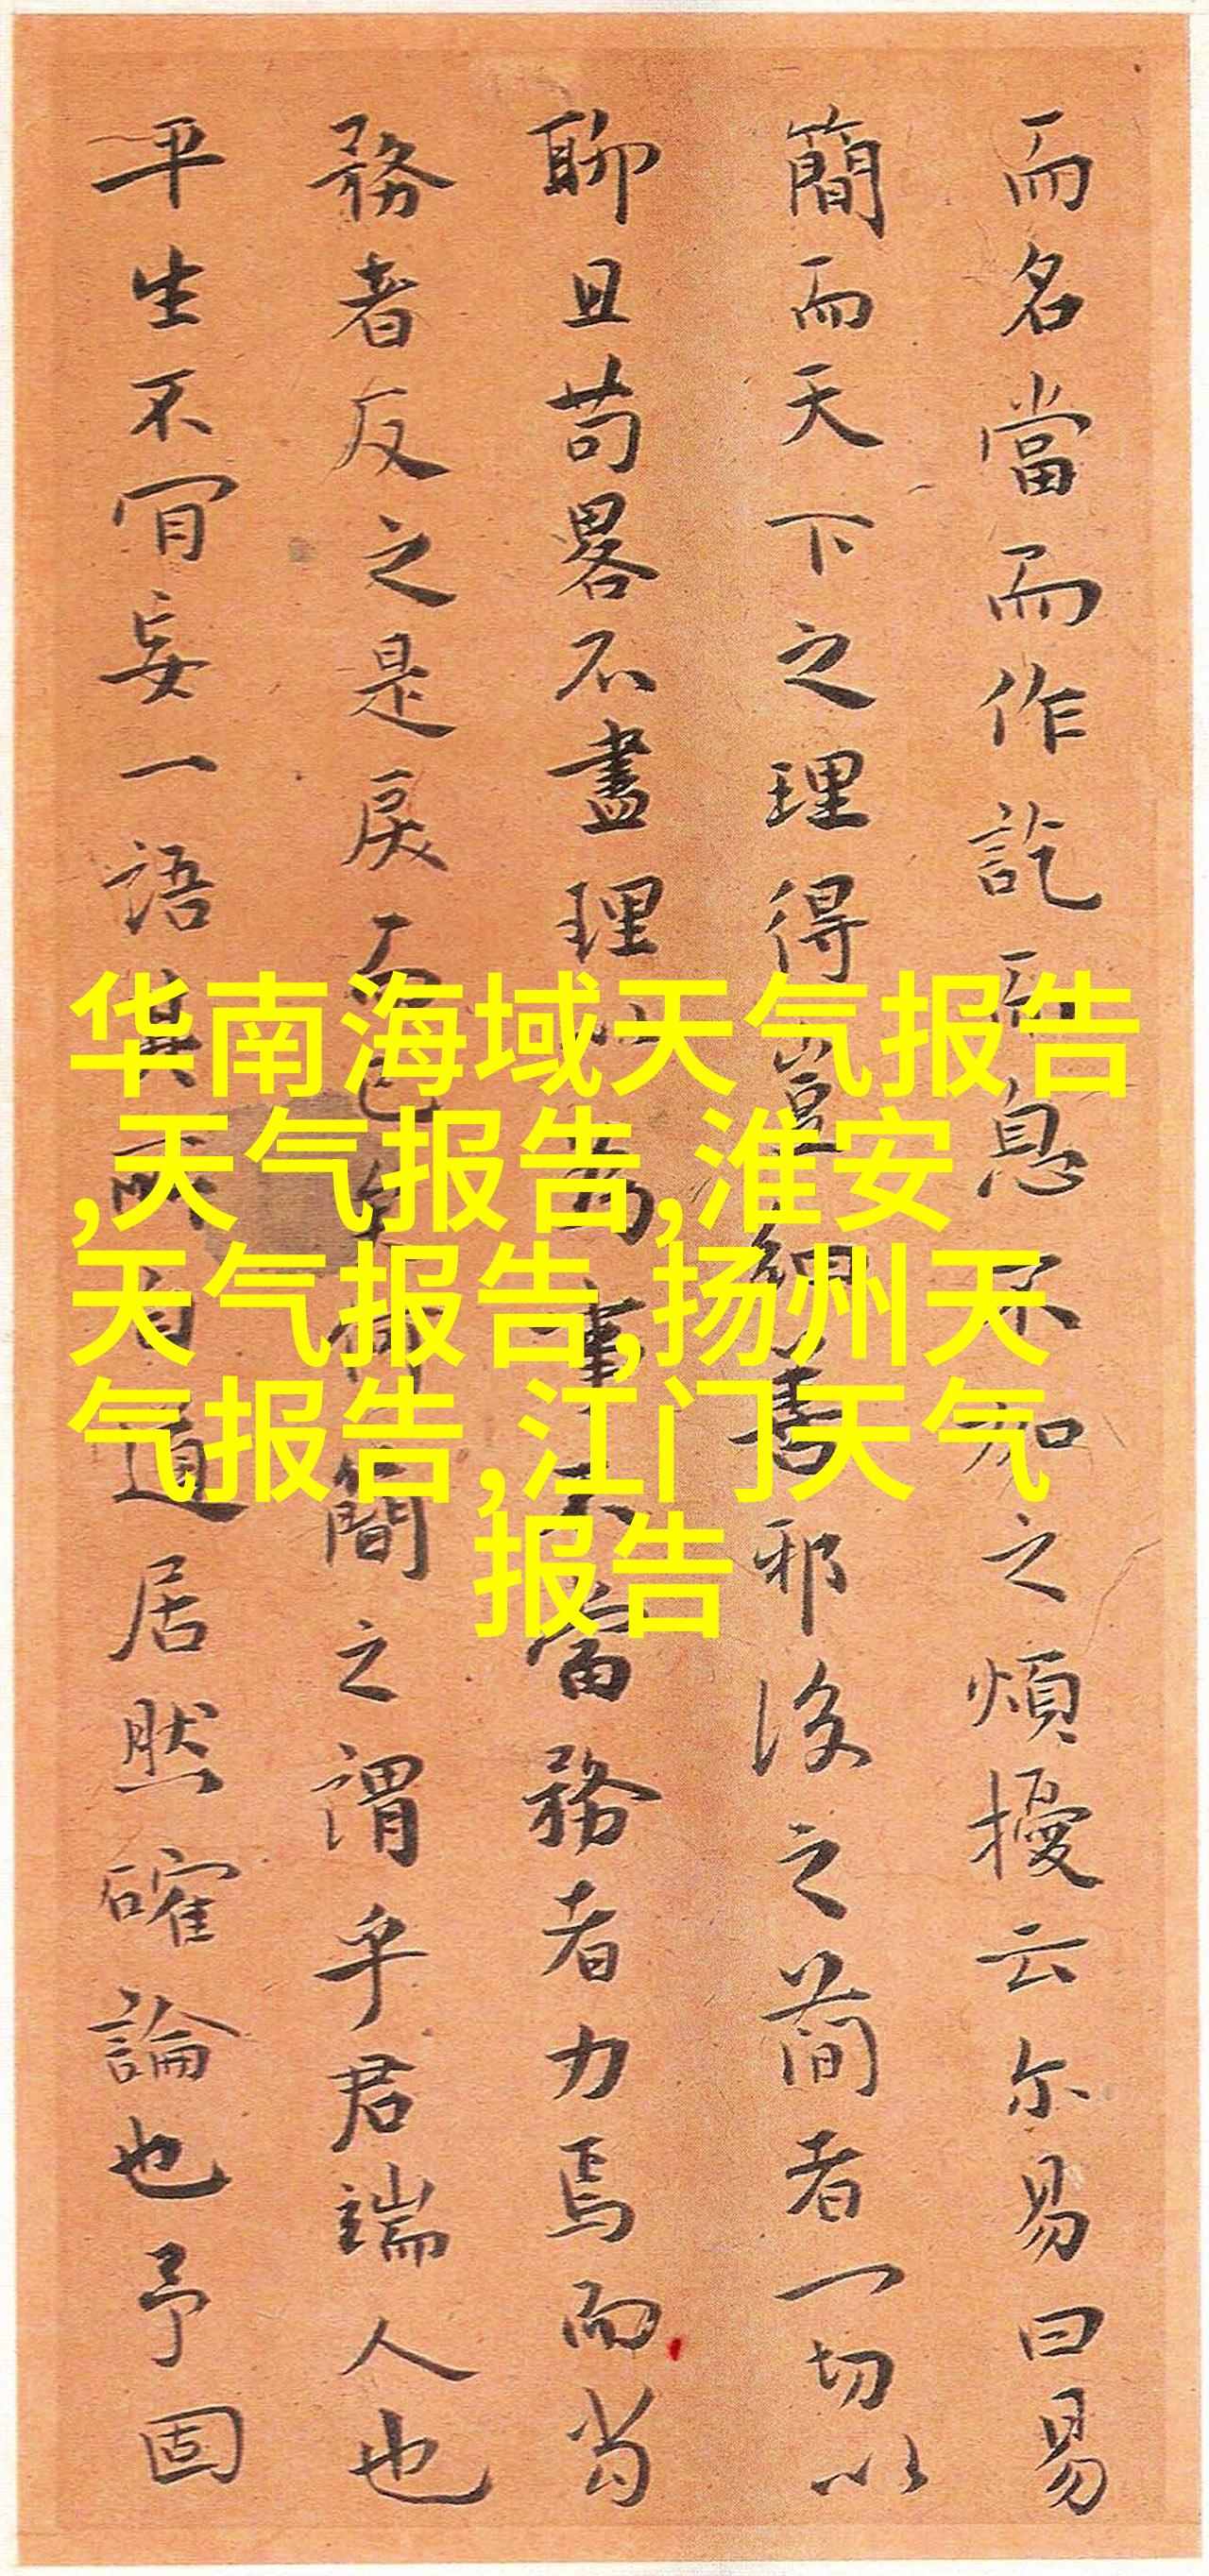 而名當而作訖而息不加之煩擾云尔易曰易
簡而天下之理得豈細邪後之簡者一切以
聊且苟畧不盡理為事當務者力焉而當
務者反之是戾而已簡之謂乎君端人也
平生不肎妄一語其所自道居然確論也予固
华南海域天气报告
,天气报告,淮安
天气报告,扬州天
气报告,江门天气
报告